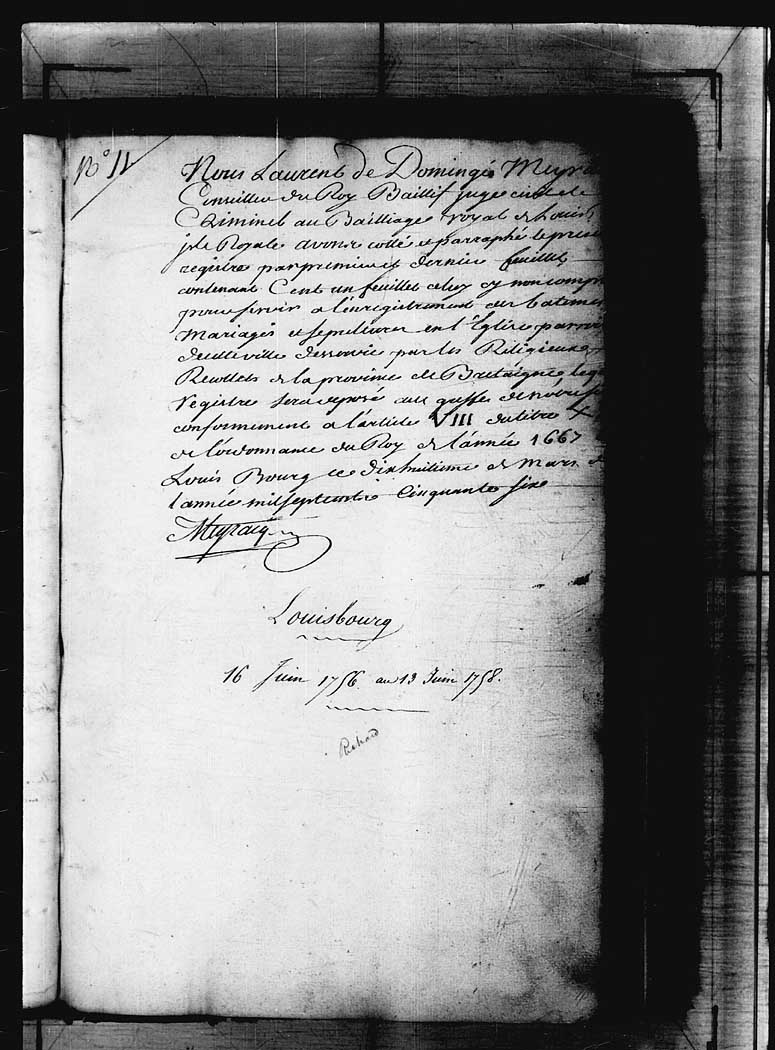 N° 11
Nous Laurent de Domingé Meyra
Conseiller du Roy Baillif juge civil et
Criminel au Bailliage royal de Louis
jsle Royale avons cotté et parraphé le pres
registre par premier et dernier feuillet
contenant Cent un feuillet celuy cy non compr
pour servir a l'enregistrement des batemes
Mariages et sepultures en l'Eglise parroi
de cette ville desservie par les Religieux
Recollets de la province de Bretaigne leq
registre sera deposé au greffe de
conformement a l'article VIII du titre
de l'ordonnance du Roy de l'année 1667
Louis Bourg ce dixhuitieme de Mars
l'année mil sept cents Cinquante six
Meyracq
Louisbourg
16 Juin 1756 au 13 Juin 1758.